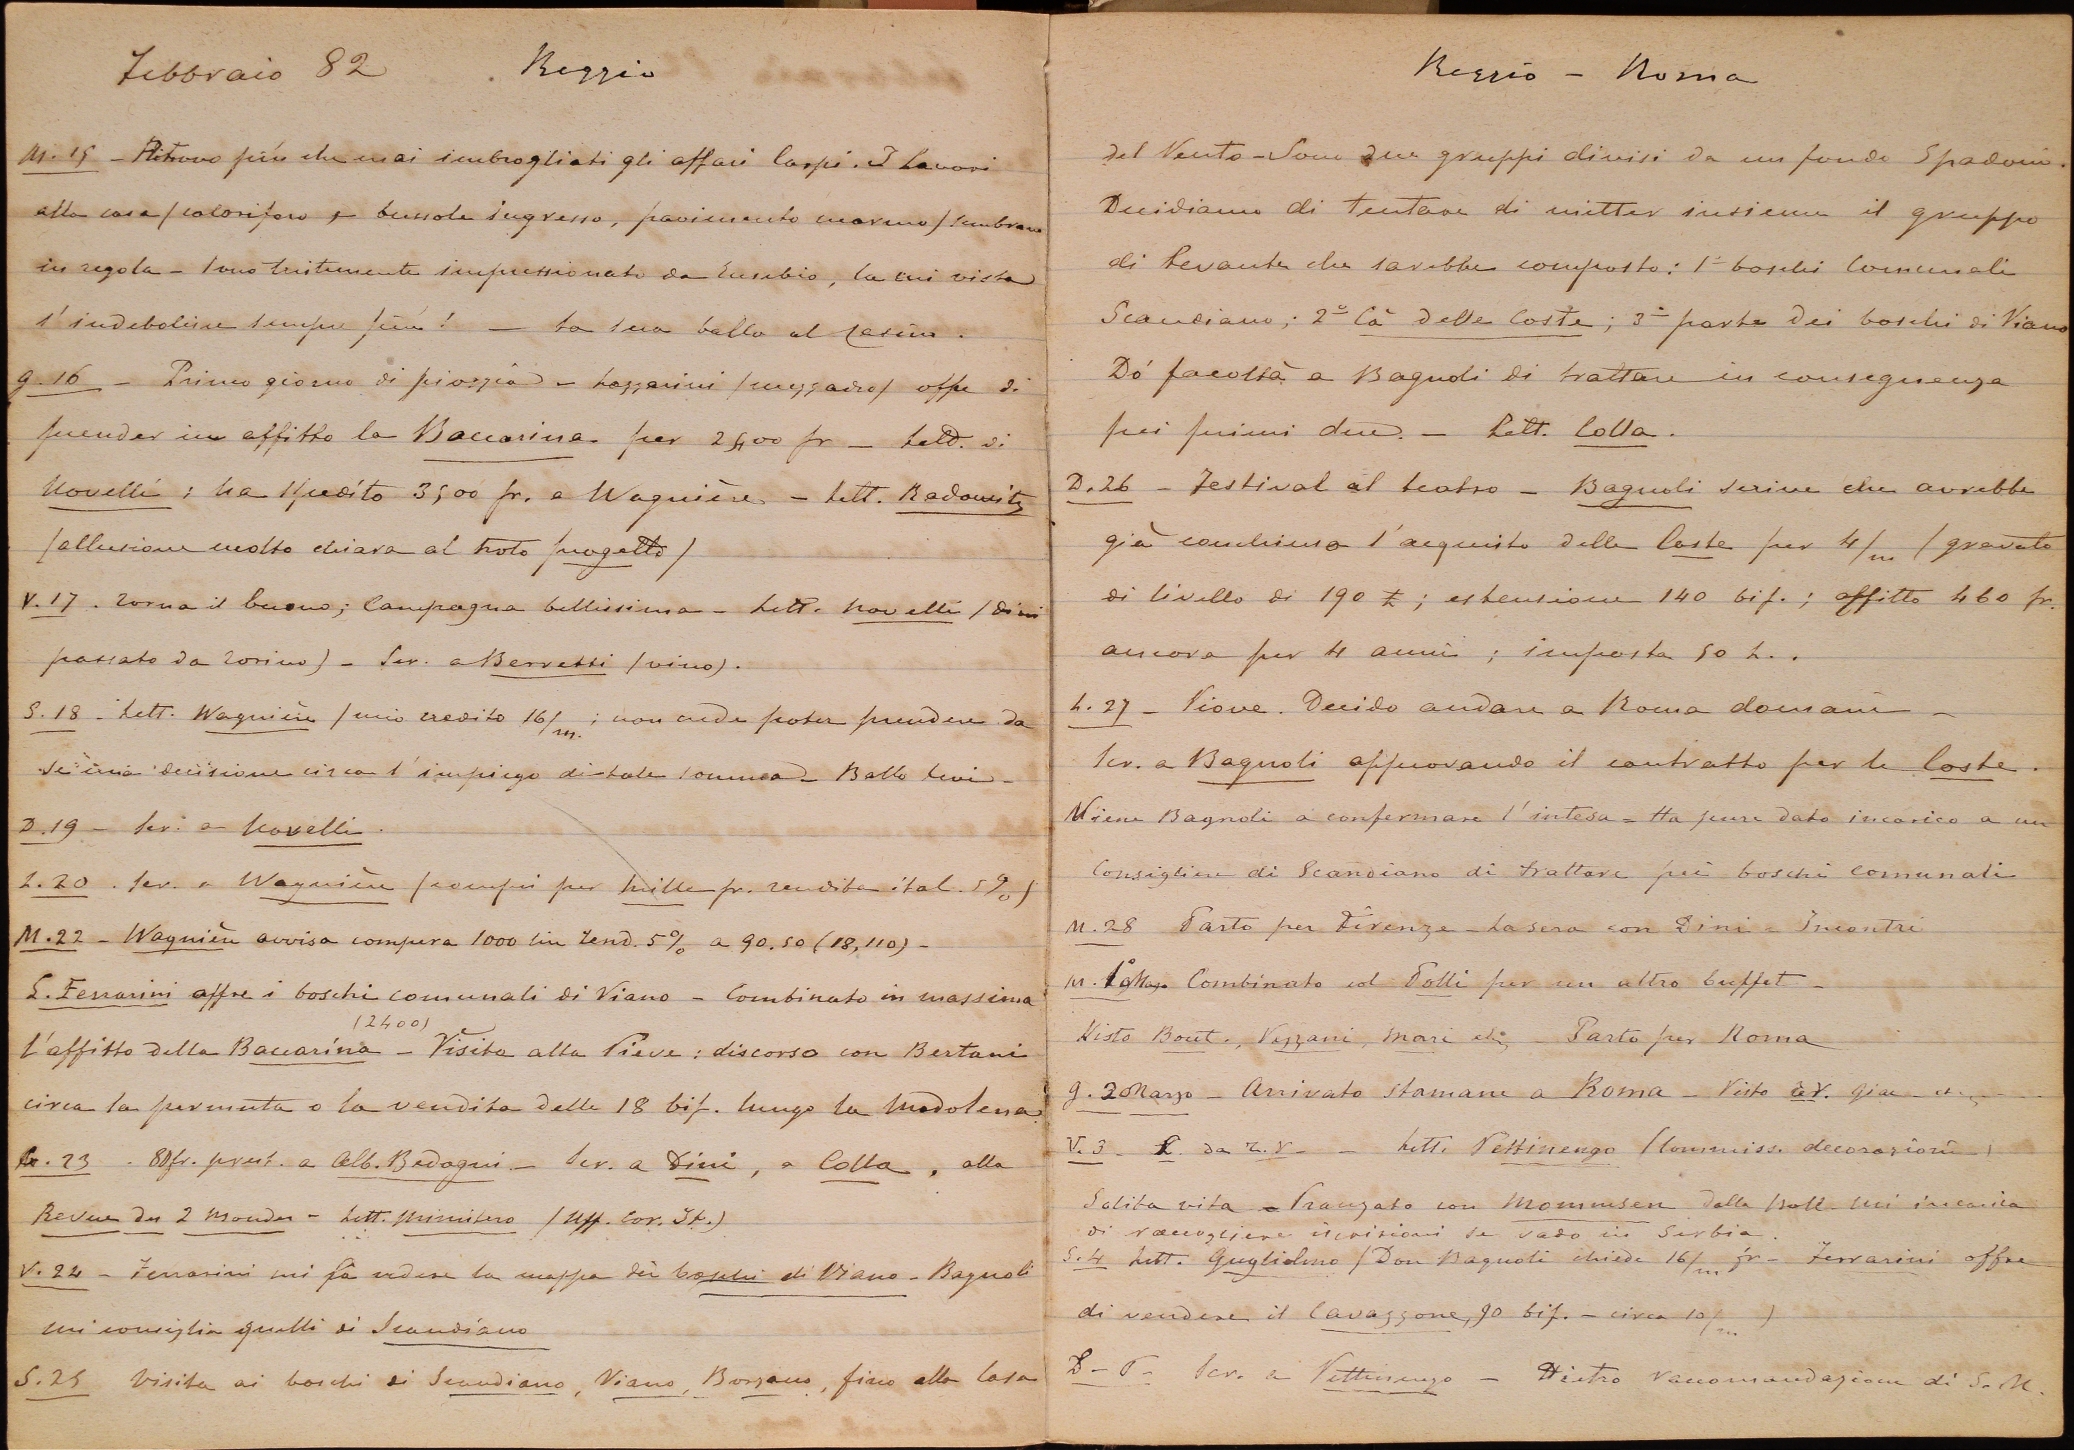 Febbraio 82 Reggio
M. 15 - Ritrovo più che mai imbrogliati gli affari Carpi. I lavori
alla casa (calorifero e bussola ingresso, pavimento marmo) sembrano
in regola - Sono tristemente impressionato da Eusebio, la cui vista
s'indebolisce sempre più! - La sera ballo al Casino.
G. 16 - Primo giorno di pioggia - Lazzarini (mezzadro) offre di
prender in affitto la Baccarina per 2400 fr - Lett. di
Novelli; ha spedito 3500 fr. a Wagnière - Lett. Radowitz
(allusione molto chiara al noto progetto)
V. 17. Torna il buono; Campagna bellissima - Lett. Novelli (Dini
passato da Torino) - Scr. a Berretti (vino).
S. 18 - Lett. Wagnière (mio credito 16/m; non crede poter prendere da
se una decisione circa l'impiego di tale somma - Ballo Levi -
D. 19 - Scr. a Novelli.
L. 20. Scr. a Wagnière (compri per mille fr. rendita ital. 5%)
M. 22 - Wagnière avvisa compera 1000 lire rend. 5% a 90.50 (18,110) -
L. Ferrarini offre i boschi comunali di Viano - Combinato in massima
(2400)
l'affitto della Baccarina - Visita alla Pieve: discorso con Bertani
circa la permuta o la vendita delle 18 bif. lungo la Modolena
G. 23. 80 fr. prest. a Alb. Bedogni - Scr. a Dini, a Colla, alla
Revue des 2 Mondes - Lett. Ministero (Uff. Cor. It.)
V. 24 - Ferrarini mi fa vedere la mappa dei boschi di Viano - Bagnoli
mi consiglia quelli di Scandiano
S. 25 Visita ai boschi di Scandiano, Viano, Borzano, fino alla Casa
Reggio - Roma
del Vento - Sono due gruppi divisi da un fondo Spadoni.
Decidiamo di tentare di metter insieme il gruppo
di Levante che sarebbe composto: 1º boschi Comunali
Scandiano; 2º Cà delle Coste; 3º parte dei boschi di Viano
Dò facoltà a Bagnoli di trattare in conseguenza
pei primi due. - Lett. Colla.
D. 26 - Festival al teatro - Bagnoli scrive che avrebbe
già conchiuso l'acquisto delle Coste per 4/m (gravato
di livello di 190 £; estensione 140 bif.; affitto 460 fr.
ancora per 4 anni; imposta 50 L..
L. 27 - Piove. Decido andare a Roma domani -
Scr. a Bagnoli approvando il contratto per le Coste.
Viene Bagnoli a confermare l'intesa - Ha pure dato incarico a un
Consigliere di Scandiano di trattare pei boschi comunali
M. 28 Parto per Firenze - La sera con Dini - Incontri
M. 1º Marzo Combinato col Polli per un altro buffet -
Visto Bout., Vezzani, Mari etc - Parto per Roma
G. 2 Marzo - Arrivato stamane a Roma - Visto
V. 3 - da - Lett. Pettinengo (Commiss. decorazioni)
Solita vita - Pranzato con Mommsen dalla mi incarica
di raccogliere iscrizioni se vado in Serbia.
S. 4 Lett. Guglielmo (Don Bagnoli chiede 16/m fr - Ferrarini offre
di vendere il Cavazzone, 90 bif. - circa 10/m)
D - 5 - Scr. a Pettinengo - Dietro raccomandazione di S. M.